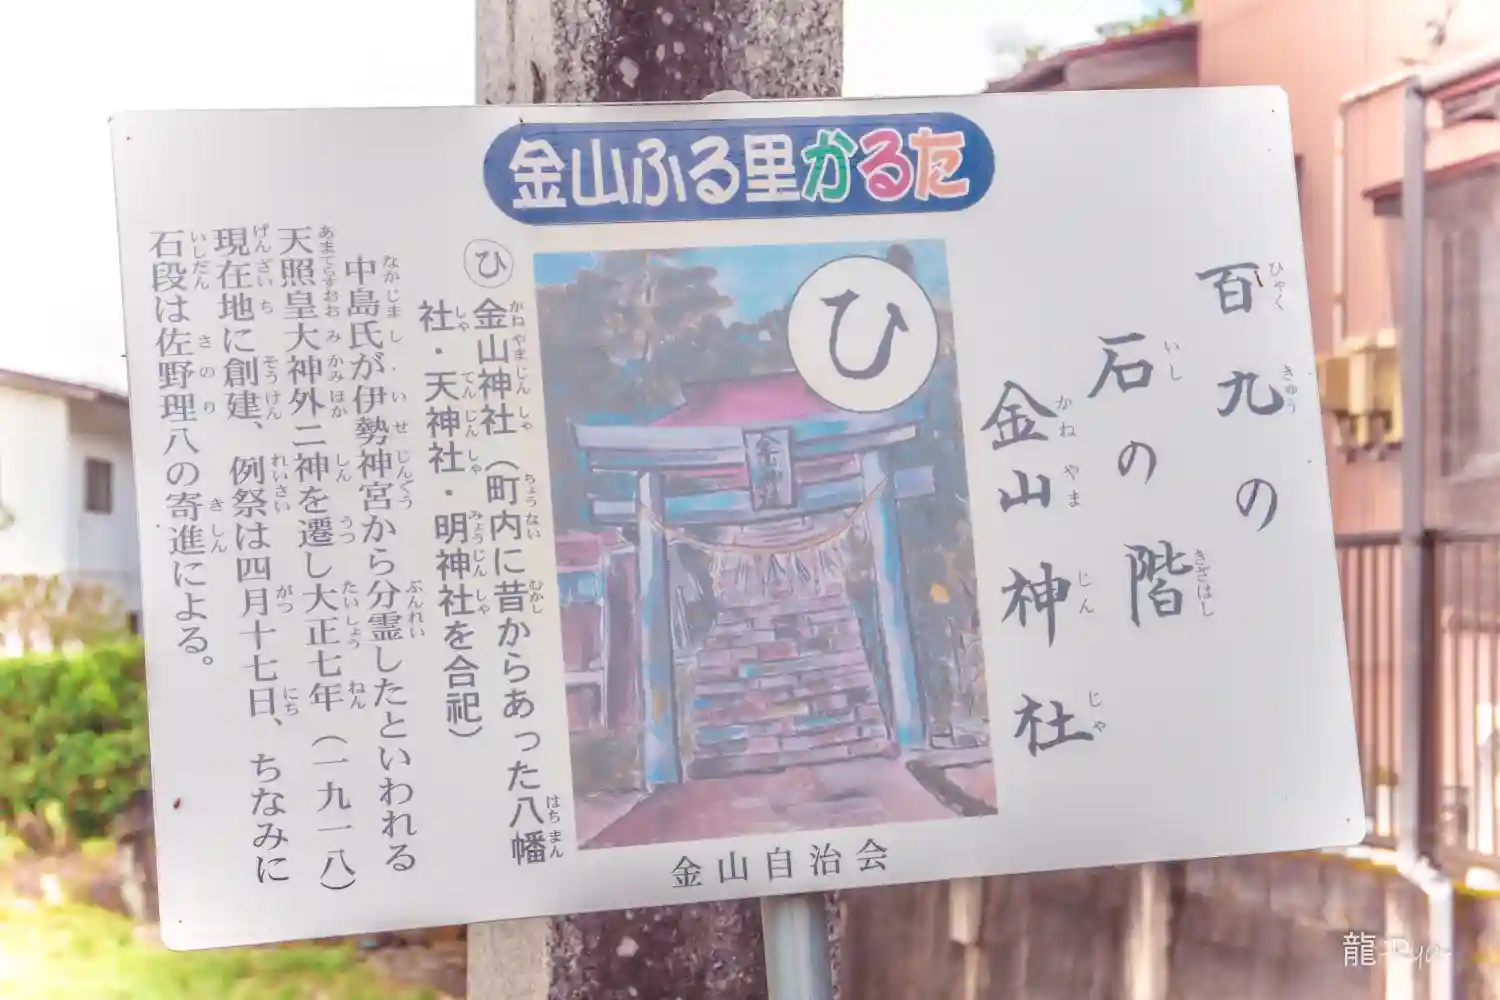 金山ふる里かるた
百九の
石の階
金山神社
ひ
金山神社
ひ 金山神社（町内に昔からあった八幡
社・天神社・明神社を合祀）
中島氏が伊勢神宮から分霊したといわれる
天照皇大神外二神を遷し大正七年（一九一八）
現在地に創建、例祭は四月十七日、ちなみに
石段は佐野理八の寄進による。
金山自治会
龍-Ryu-